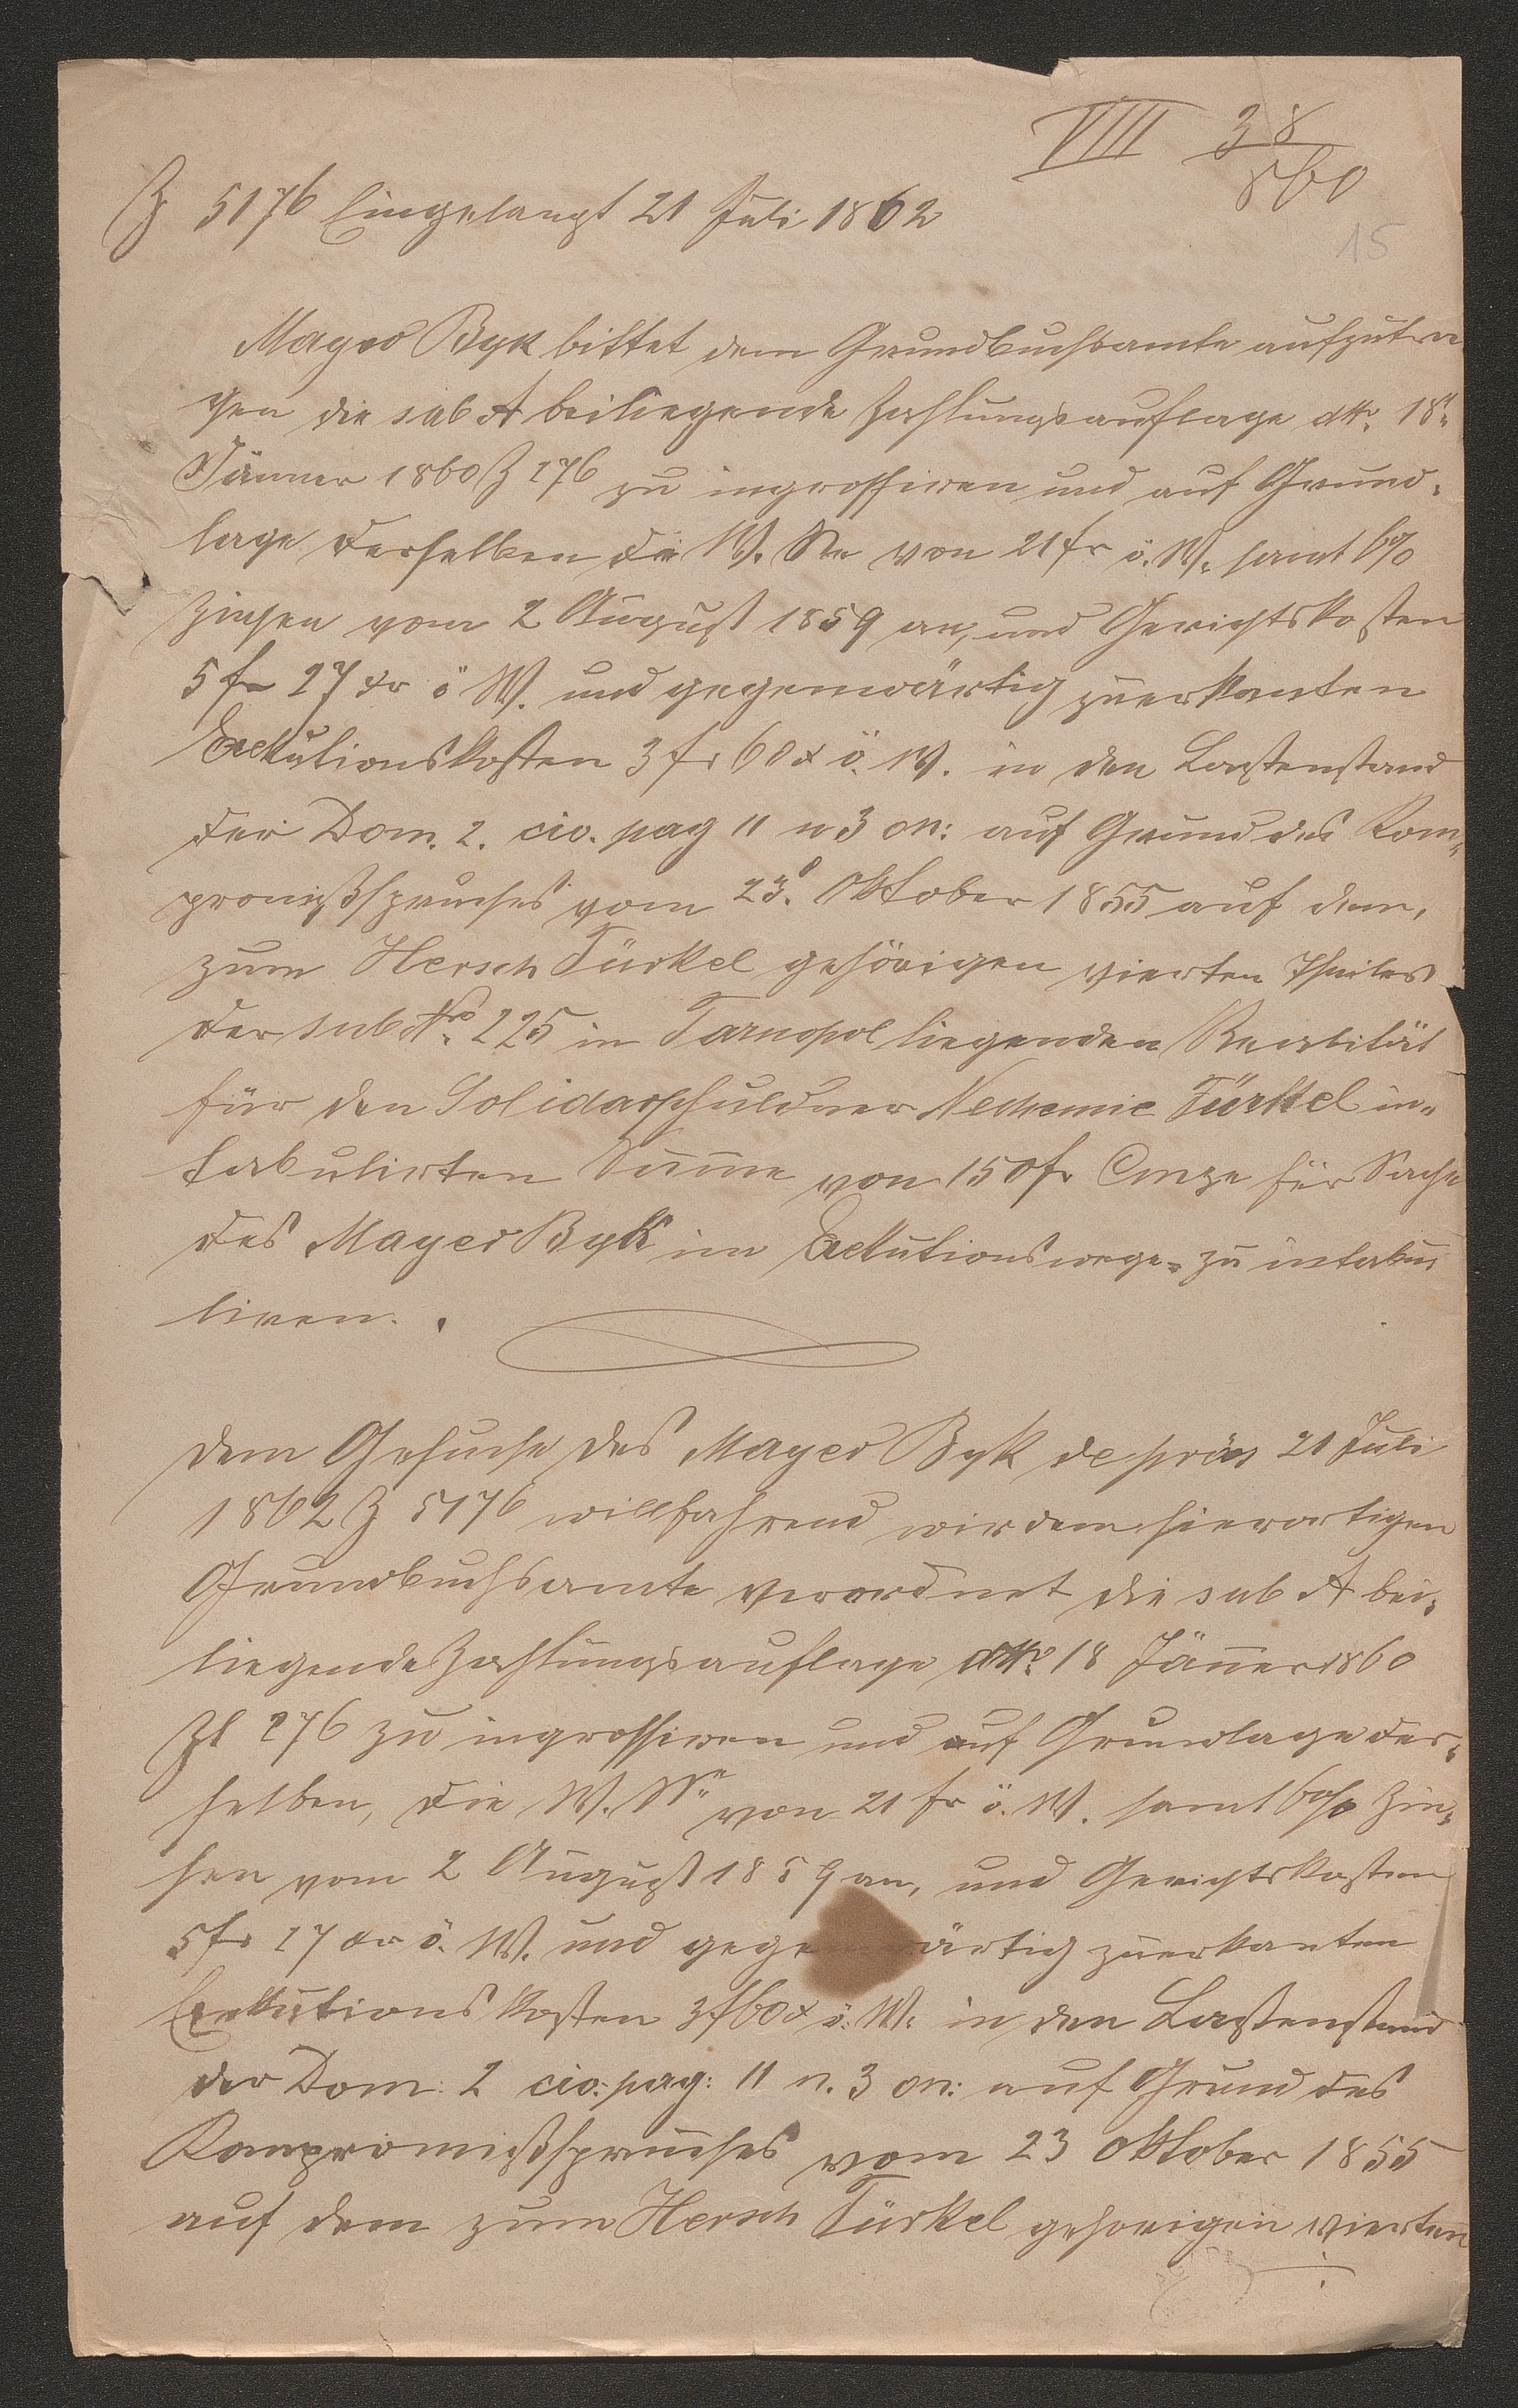 VIII 38/860
Z 5176 Eingelangt 21 Juli 1862
15
Mayer Byk bittet dem Grundbuchsamte aufzutra
gen die sub A beiliegende Zahlungsauflage dtto 18t
Jänner 1860 Z 276 zu ingrossiren und auf Grund-
lage derselben die W. Se von 21 fr ö. W. samt 6%
Zinsen vom 2 August 1859 an, und Gerichtskosten
5 fr 27 xr ö W. und gegenwärtig zuerkanten
Exekutionskosten 3 fr 60 x ö. W. in den Lastenstand
der Dom. 2. civ. pag 11 n 3 on: auf Grund des Kom-
promißspruches vom 23. Oktober 1855 auf dem,
zum Hersch Türkel gehörigen vierten Theiles
der sub Nro 225 in Tarnopol liegenden Realität
für den Solidarschuldner Nechemie Türkel in-
tabulirten Summe von 150 fr Cmze für Sache
des Mayer Byk im Exekutionswege zu intabu
liren.
Dem Gesuche des Mayer Byk de präs 21 Juli
1862 Z 5176 willfahrend wird dem hierortigen
Grundbuchsamte verordnet die sub A bei-
liegende Zahlungsauflage dtto 18 Jänner 1860
Zl 276 zu ingrossiren und auf Grundlage der-
selben, die W. Se von 21 fr ö. W. samt 6% Zin-
sen vom 2 August 1859 an, und Gerichtskosten
5 fr 27 xr ö. W. und gegenwärtig zuerkanten
Exekutionskosten 3 f 60 x ö. W. in den Lastenstand
der Dom: 2 civ: pag: 11 n. 3 on: auf Grund des
Kompromißspruches vom 23 Oktober 1855
auf dem zum Hersch Türkel gehörigen vierten